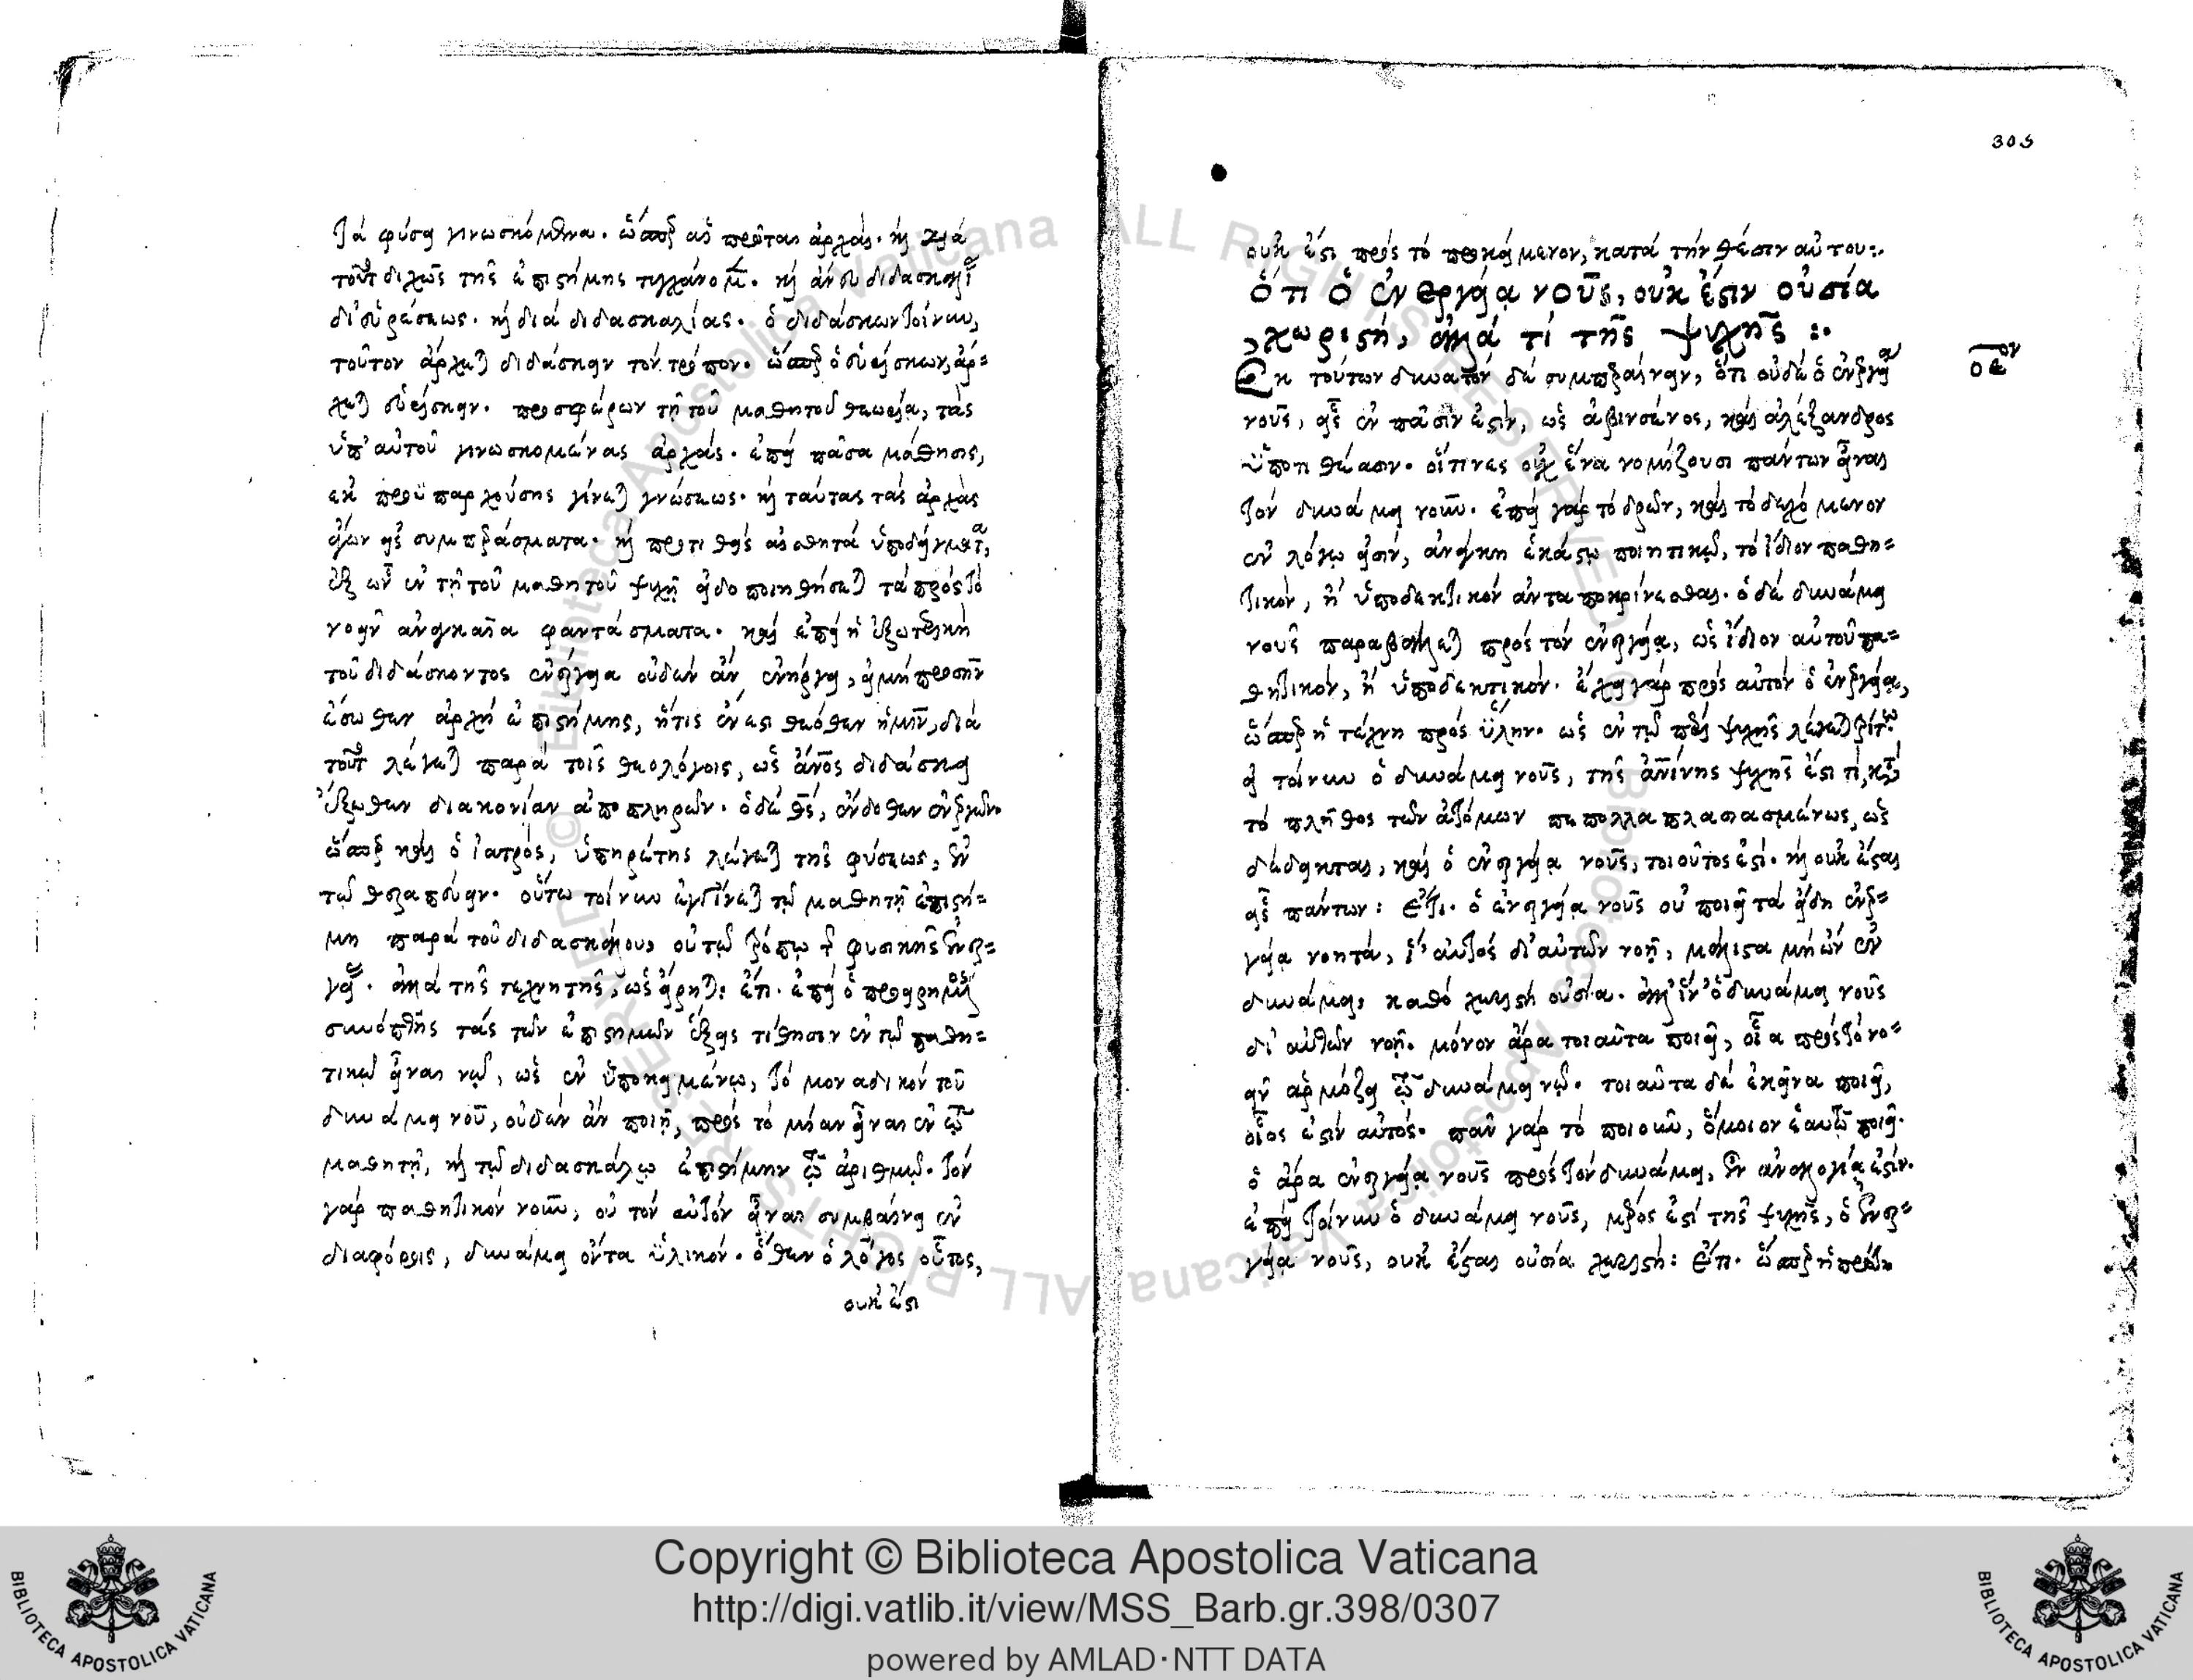 τά φύσει γινωσκόμενα. ὥσπερ αἱ πρῶται ἀρχαί. καὶ κατά
τοῦτο διχῶς τῆς ἐπιστήμης τυγχάνομεν. καὶ ἄνευ διδασκαλίας
δι' εὑρέσεως. καὶ διά διδασκαλίας. ὁ διδάσκων τοίνυν,
τοῦτον ἄρχεται διδάσκειν τόν τρόπον. ὥσπερ ὁ εὑρίσκων ἄρ=
χεται εὑρίσκειν. προσφέρων τῇ τοῦ μαθητοῦ θεωρίᾳ, τάς
ὑπ' αὐτοῦ γινωσκομένας ἀρχάς. ἐπεί πᾶσα μάθησις,
ἐκ προϋπαρχούσης γίνεται γνώσεως. καὶ ταύτας τάς ἀρχάς
ἄγων εἰς συμπεράσματα. καὶ προτιθείς αἰσθητά ὑποδείγματα,
ἐξ ὧν ἐν τῇ τοῦ μαθητοῦ ψυχῇ εἰδοποιηθήσεται τά πρός τό
νοεῖν ἀναγκαῖα φαντάσματα. καί ἐπεί ἡ ἐξωτερική
τοῦ διδάσκοντος ἐνέργεια οὐδέν ἄν ἐνήργει, εἰ μή προσῆν
ἔσωθεν ἀρχή ἐπιστήμης, ἥτις ἔνεστι θεόθεν ἡμῖν, διά
τοῦτο λέγεται παρά τοῖς θεολόγοις, ὡς ἄνος διδάσκει
ἔξωθεν διακονίαν ἀποπληρῶν. ὁ δέ θς, ἔνδοθεν ἐνεργῶν.
ὥσπερ καί ὁ ἰατρός, ὑπηρέτης λέγεται τῆς φύσεως, ἐν
τῷ θεραπεύειν. οὕτω τοίνυν ἐγγίνεται τῷ μαθητῇ ἐπιστή=
μη παρά τοῦ διδασκάλου, οὐ τῷ τρόπῳ τῆς φυσικῆς ἐνερ=
γείας. ἀλλά τῆς τεχνητῆς, ὡς εἴρηται: ἔτι. ἐπεί ὁ προειρημένος
συνόπτης τάς τῶν ἐπιστημῶν ἕξεις τίθησιν ἐν τῷ παθη=
τικῷ εἶναι νῷ, ὡς ἐν ὑποκειμένῳ, τό μοναδικόν τοῦ
δυνάμει νοῦ, οὐδέν ἄν ποιῇ, πρός τό μίαν εἶναι ἐν τῷ
μαθητῇ, καὶ τῷ διδασκάλῳ ἐπιστήμην τῷ ἀριθμῷ. τόν
γάρ παθητικόν νοῦν, οὐ τόν αὐτόν εἶναι συμβαίνει ἐν
διαφόροις, δυνάμει ὄντα ὑλικόν. ὅθεν ὁ λόγος οὗτος,
οὐκ ἔστι
305
οὐκ ἔστι πρός τό προκείμενον, κατά τήν θέσιν αὐτοῦ:.
ὅτι ὁ ἐνεργείᾳ νοῦς, οὐκ ἔστιν οὐσία
χωριστή, ἀλλά τί τῆς ψυχῆς :.
οεον
Ἐκ τούτων δυνατόν δέ συμπεραίνειν, ὅτι οὐδέ ὁ ἐνεργείᾳ
νοῦς, εἷς ἐν πᾶσιν ἐστίν, ὡς ἀβινσένος, καί ἀλέξανδρος
ὑποτιθέασιν. οἵτινες οὐχ ἕνα νομίζουσι πάντων εἶναι
τόν δυνάμει νοῦν. ἐπεί γάρ τό δρῶν, καί τό δεχόμενον
ἐν λόγῳ εἰσίν, ἀνάγκη ἑκάστῳ ποιητικῷ, τό ἴδιον παθη=
τικόν, ἤ ὑποδεκτικόν ἀνταποκρίνεσθαι. ὁ δέ δυνάμει
νοῦς παραβάλλεται πρός τόν ἐνεργείᾳ, ὡς ἴδιον αὐτοῦ πα=
θητικόν, ἤ ὑποδεκτικόν. ἔχει γάρ πρός αὐτόν ὁ ἐνεργείᾳ,
ὥσπερ ἡ τέχνη πρός ὕλην. ὡς ἐν τῷ περί ψυχῆς λέγεται τρίτῳ.
εἰ τοίνυν ὁ δυνάμει νοῦς, τῆς ἀνίνης ψυχῆς ἐστι τί, κατά
τό πλῆθος τῶν ἀτόμων πεπολλαπλασιασμένως, ὡς
δέδεικται, καί ὁ ἐνεργείᾳ νοῦς, τοιοῦτος ἐστί. καὶ οὐκ ἔσται
εἷς πάντων: ἔτι. ὁ ἐνεργείᾳ νοῦς οὐ ποιεῖ τά εἴδη ἐνερ=
γείᾳ νοητά, ἵν' αὐτός δι' αὐτῶν νοῇ, μάλιστα μή ὤν ἐν
δυνάμει, καθό χωριστή οὐσία. ἀλλ' ἵν' ὁ δυνάμει νοῦς
δι' αὐτῶν νοῇ. μόνον ἄρα τοιαῦτα ποιεῖ, οἷα πρός τό νο=
εῖν ἁρμόζει τῷ δυνάμει νῷ. τοιαῦτα δέ ἐκεῖνα ποιεῖ,
οἷος ἐστίν αὐτός. πᾶν γάρ τό ποιοῦν, ὅμοιον ἑαυτῷ ποιεῖ.
ὁ ἄρα ἐνεργείᾳ νοῦς πρός τόν δυνάμει, ἐν ἀναλογίᾳ ἐστίν.
ἐπεί τοίνυν ὁ δυνάμει νοῦς, μέρος ἐστί τῆς ψυχῆς, ὁ ἐνερ=
γείᾳ νοῦς, οὐκ ἔσται οὐσία χωριστή: ἔτι. ὥσπερ ἡ πρώτη
Copyright © Biblioteca Apostolica Vaticana
http://digi.vatlib.it/view/MSS_Barb.gr.398/0307
powered by AMLAD·NTT DATA
BIBLIOTECA APOSTOLICA VATICANA
BIBLIOTECA APOSTOLICA VATICANA